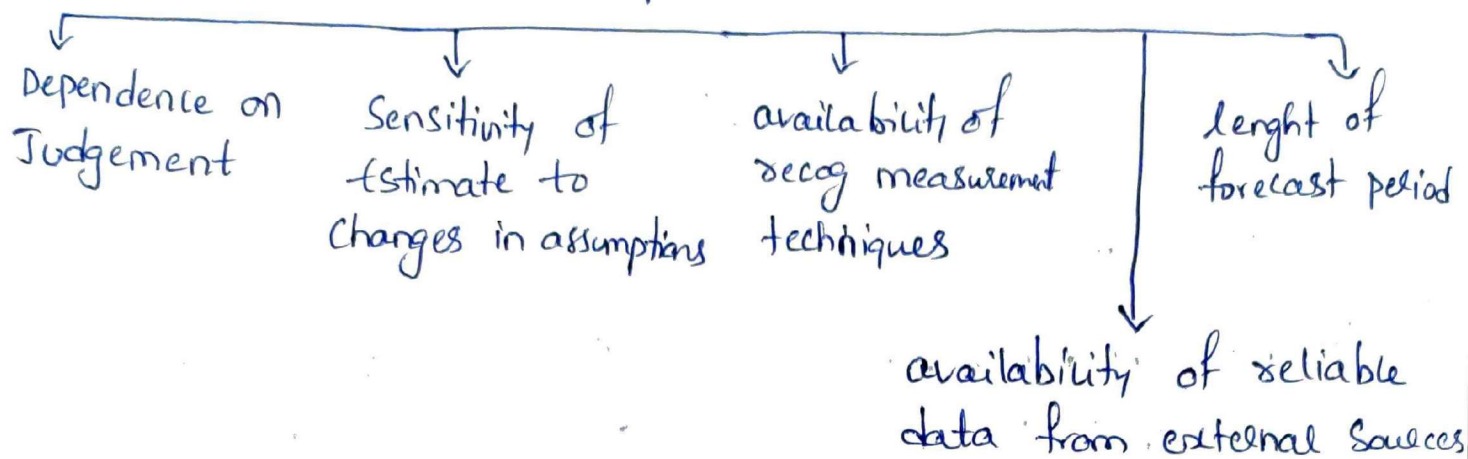 Dependence on
Judgement
Sensitivity of
Estimate to
Changes in assumptions
availability of
recog measurement
techniques
lenght of
forecast period
availability of reliable
data from external Sources